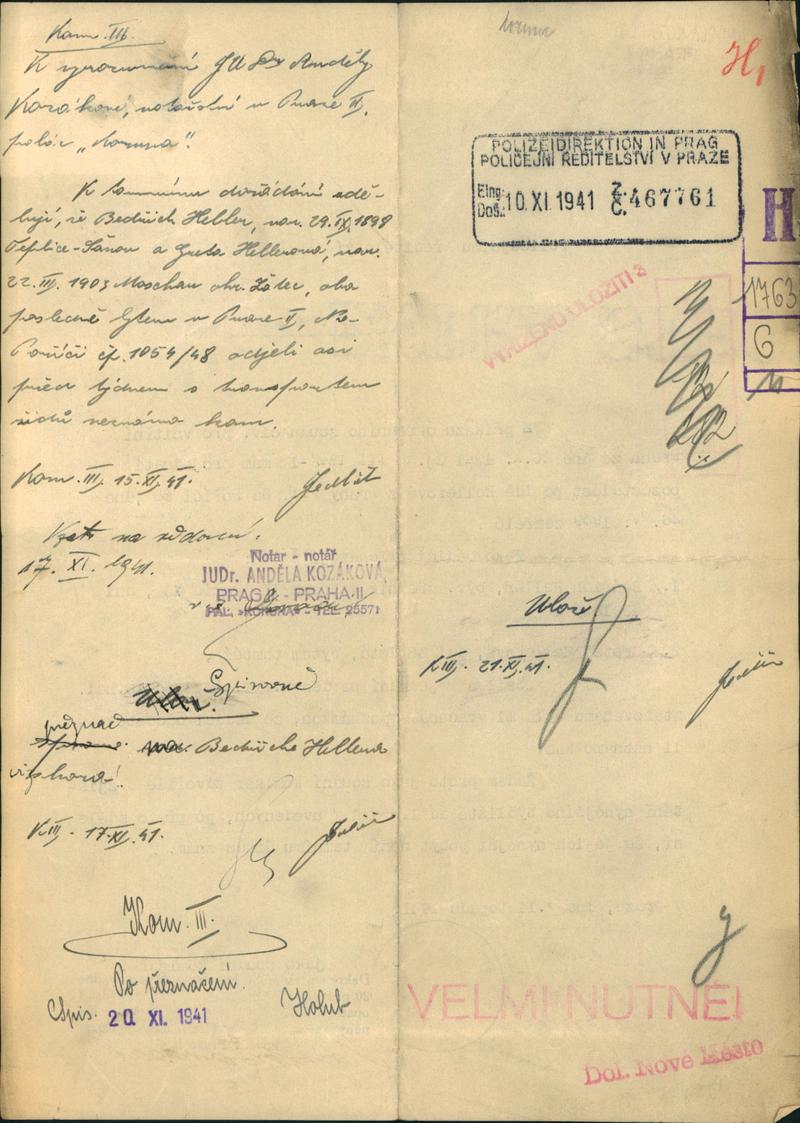 Kom. III.
K vyrozumění JUDr Anděly
Kozákové, notářství v Praze II,
palác „Koruna".
K tomuto dožádání sdě-
luji, že Bedřich Heller, nar. 29.IX.1898
Teplice-Šanov a Greta Hellerová, nar.
22.III. 1903 Moschau okr. Žatec, oba
posledně bytem v Praze II, Na
Poříčí čp. 1054/48 odjeli asi
před týdnem s transportem
židů neznámo kam.
Kom. III, 15.XI.41.
na vědomí.
17. XI. 1941.
Notar - notář
JUDr. ANDĚLA KOZÁKOVÁ,
PRAG II - PRAHA II
PAL. „KORUNA" - TEL. 25571
Spisovně
přeznač
Bedřicha Hellera
K.III. 17.XI.41.
Kom. III.
Po přeznačení.
Spis. 20. XI. 1941 Holub
H,
POLIZEIDIREKTION IN PRAG
POLICEJNÍ ŘEDITELSTVÍ V PRAZE
Eing.
Doš.: 10. XI. 1941 Z.
Č. 467761
H
1763
6
VYŘÍZENO ULOŽITI
Ulož.
K.III. 21.XI.41.
VELMI NUTNÉ!
Dol. Nové Město